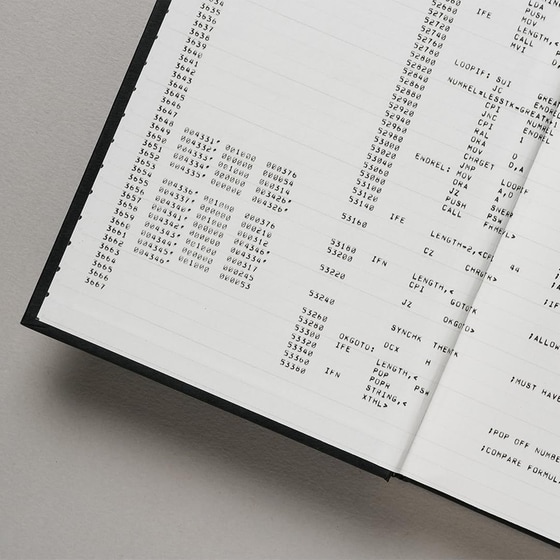 3635
3636
3637
3638
3639
3640
3641
3642
3643
3644
3645
3646
3647
3648
3649 004331' 001000 000376
3650 004332' 000000 000054
3651 004333' 001000 000314
3652 004334' 000000 004326'
3653 004335' 000000
3654
3655 004336' 001000 000376
3656 004337' 000000 000210
3657 004340' 001000 000312
3658 004341' 000000 004346'
3659 004342' 000000
3660 004343' 001000
3661 004344' 000000
3662 004345' 000000 000317
3663 004346' 001000 000245
3664 000053
3665
3666
3667
52660
52680 IFE
52700
52720
52740
52760
52780
52800
52820
52840
52860
52880
52900
52920
52940
52960
52980
53000
53020
53040
53060
53080
53100
53120
53140
53160 IFE
53180
53200 IFN
53220
53240
53260
53280
53300
53320 IFE
53340
53360 IFN
LDA
PUSH
MOV
LENGTH,<
CALL
MVI
LOOPIF: SUI
JC
NUMREL=LESSTK-GREATK+
CPI NUMREL
JNC ENDREL
CPI 1
RAL
ORA
MOV D
CHRGET D,A
ENDREL: JMP LOOPIF
MOV
ORA A,D
JZ A
PUSH SNERR
CALL PSW
FRMEVL>
LENGTH=2,<CPI 44
CZ CHRGTR>
LENGTH,<
CPI GOTOTK
JZ OKGOTO>
SYNCHK THENTK
OKGOTO: DCX H
LENGTH,<
POP PSW
POPR
STRING,<
XTHL>
;ALLOW
;MUST HAVE
;POP OFF NUMBE
;COMPARE FORMUL